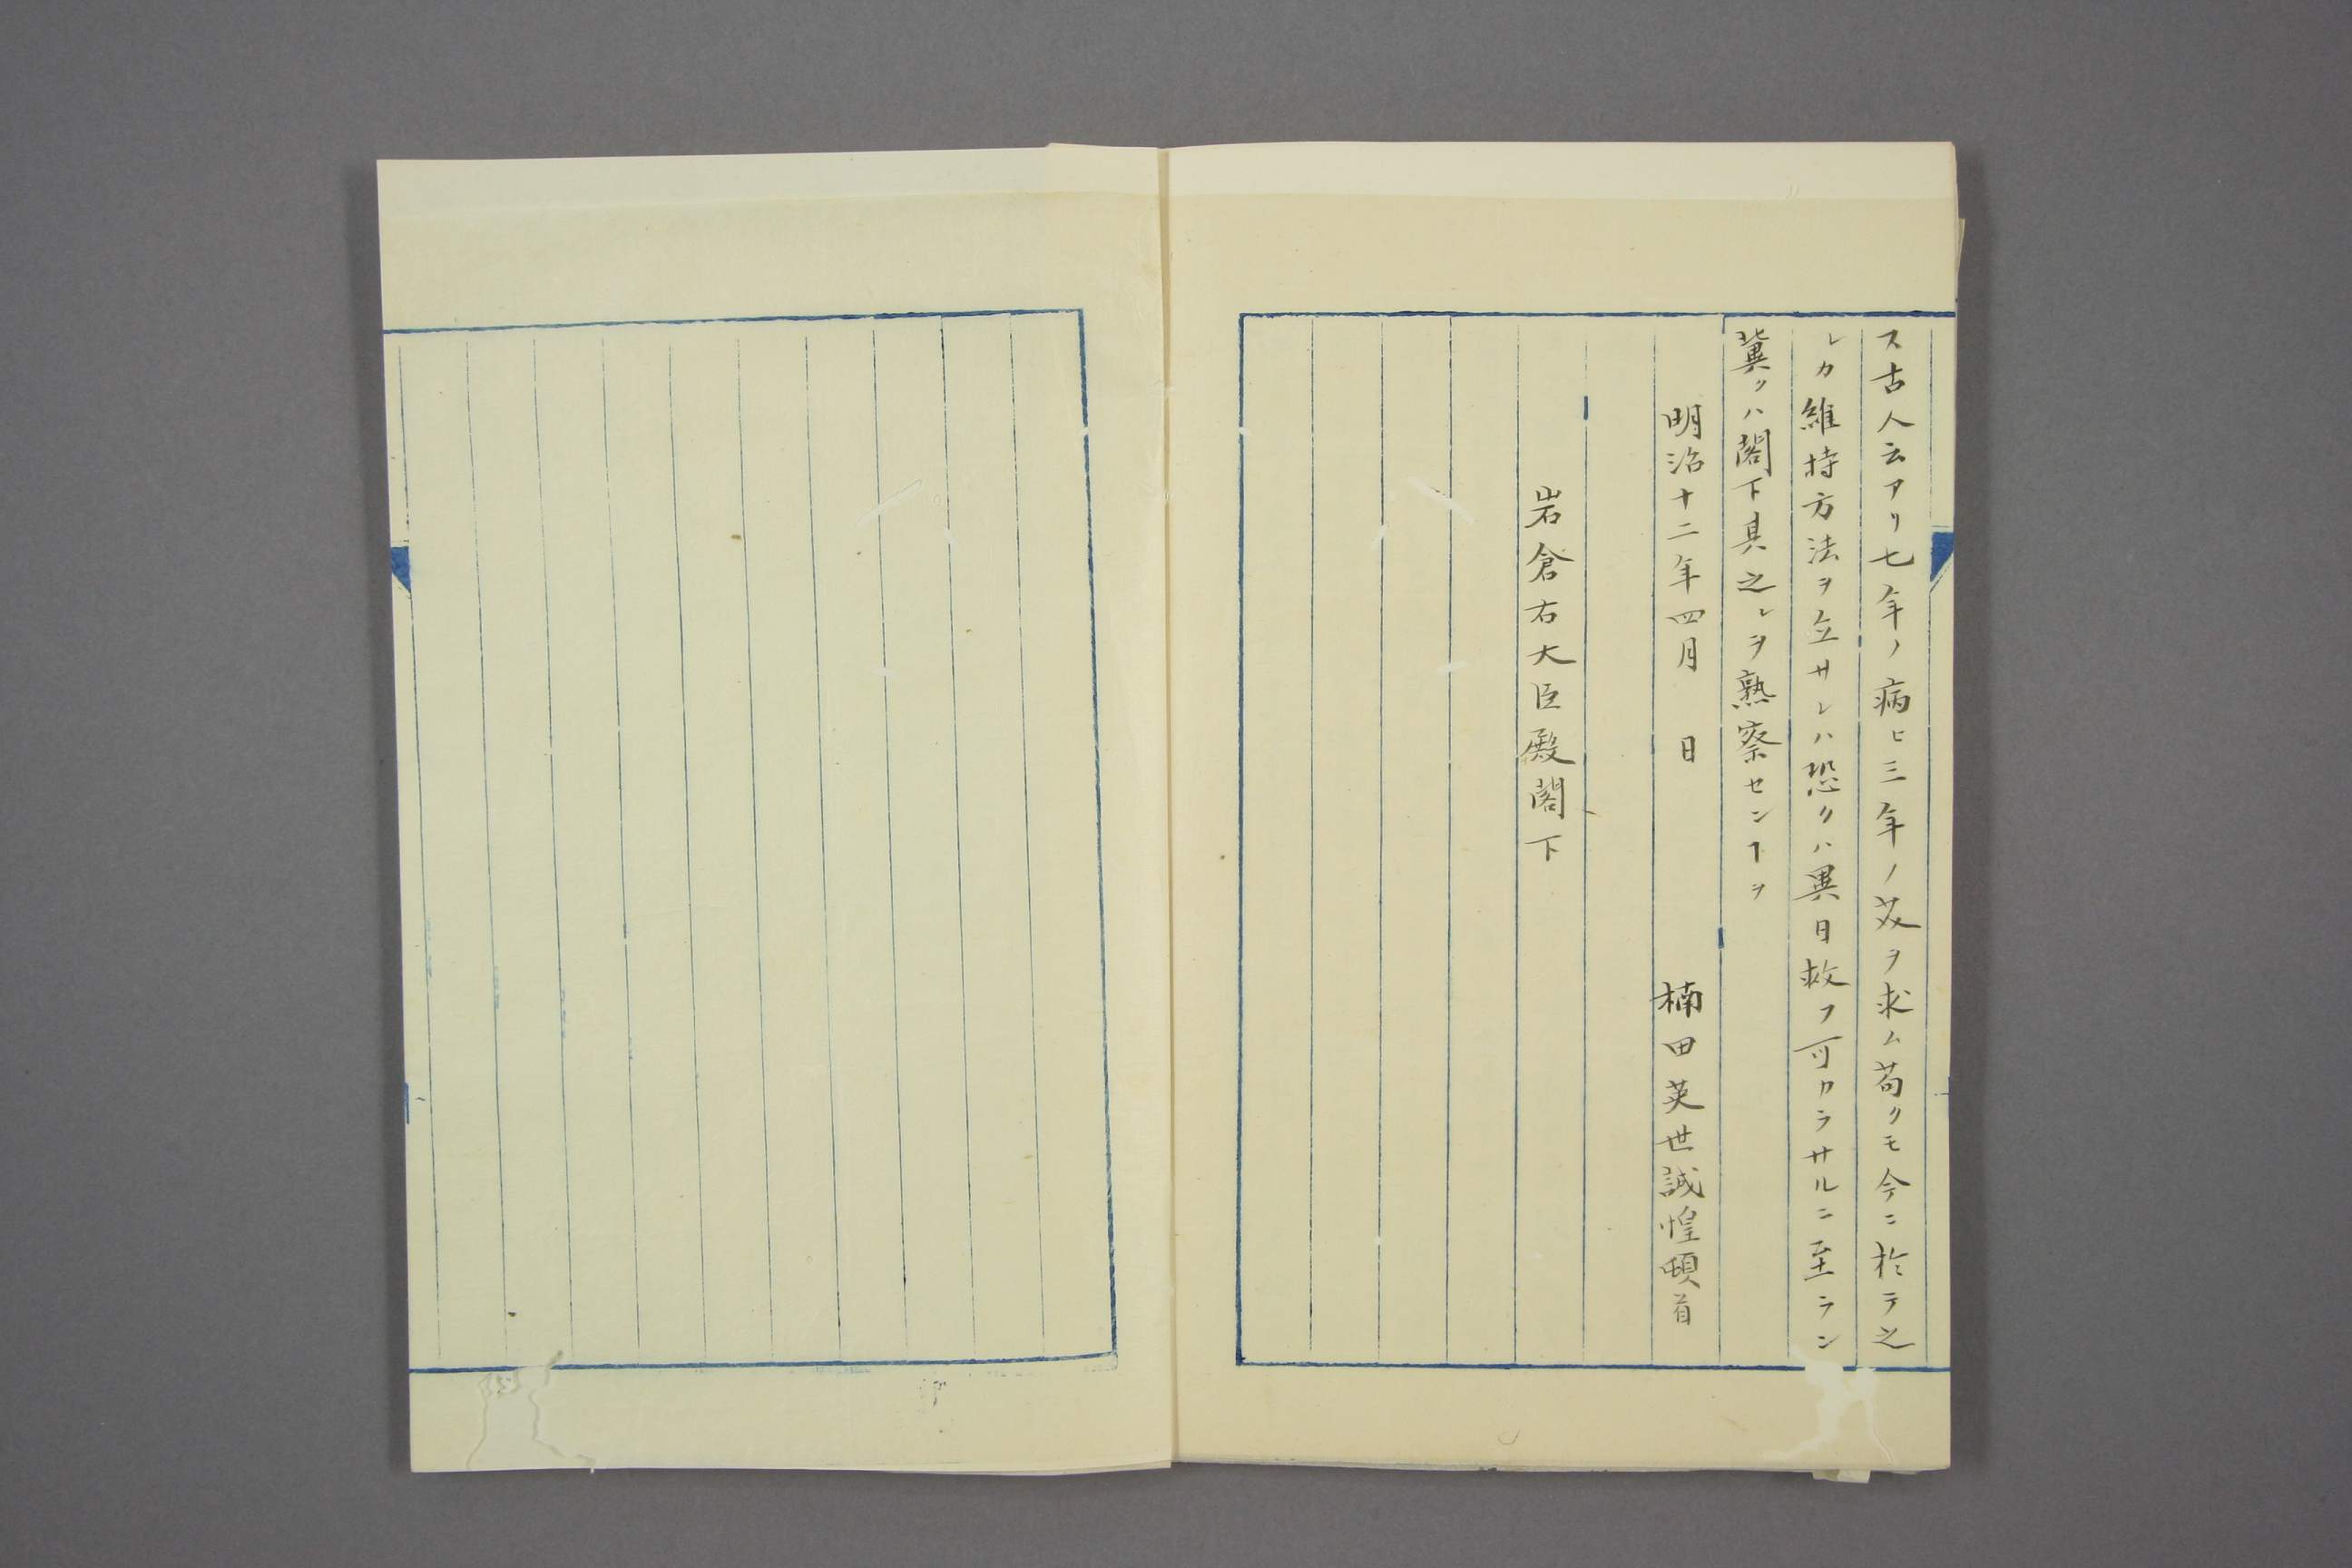 ス古人云アリ七年ノ病ヒ三年ノ艾ヲ求ム苟クモ今ニ於テ之
レカ維持方法ヲ立サレハ恐クハ異日救フ可カラサルニ至ラン
冀クハ閣下其之レヲ熟察センヿヲ
明治十二年四月　日　楠田英世誠惶頓首
岩倉右大臣殿閣下